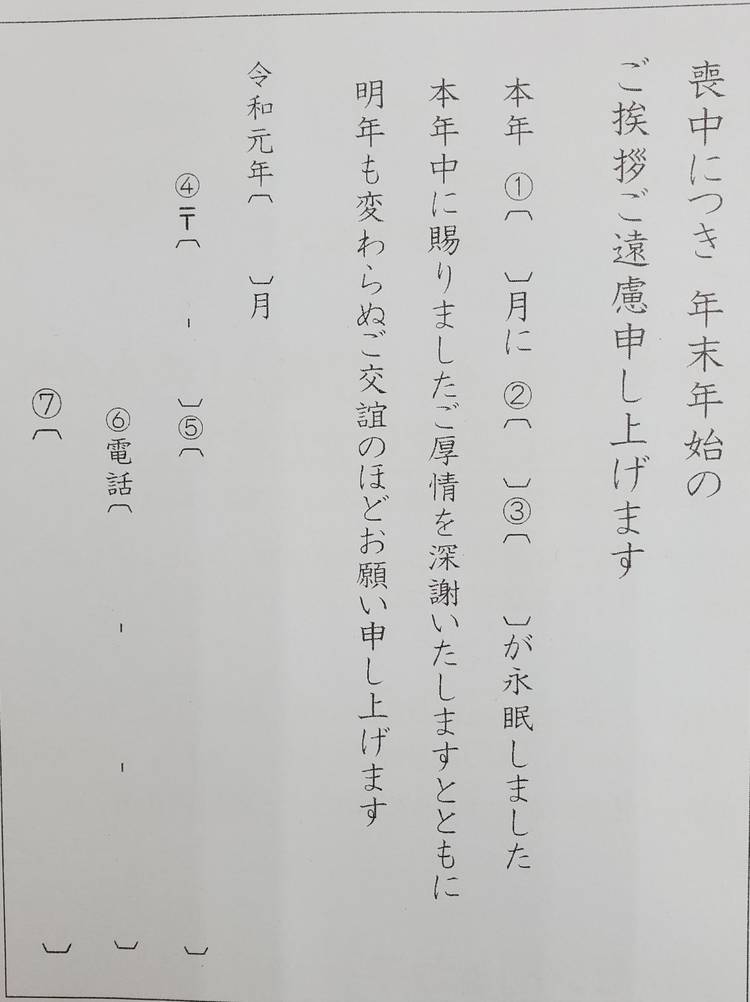 喪中につき 年末年始の
ご挨拶ご遠慮申し上げます
本年 ①〔 〕月に ②〔 〕③〔 〕が永眠しました
本年中に賜りましたご厚情を深謝いたしますとともに
明年も変わらぬご交誼のほどお願い申し上げます
令和元年〔 〕月
④〒〔 - 〕⑤〔 〕
⑥電話〔 - - 〕
⑦〔 〕